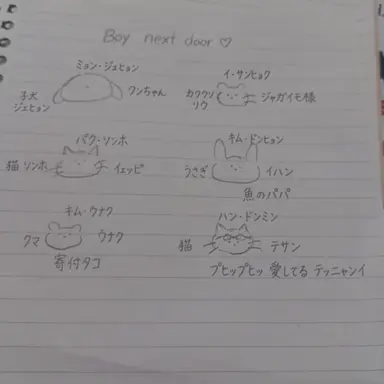 Boy next door ♡
ミョン・ジェヒョン
子犬 ジェヒョン
ワンちゃん
イ・サンヒョク
カワウソ リウ
ジャガイモ様
パク・ソンホ
猫 ソンホ
イェッピ
キム・ドンヒョン
うさぎ
イハン
魚のパパ
キム・ウナク
クマ
ウナク
寄付タコ
ハン・ドンミン
猫
テサン
プヒップヒッ 愛してる テッニャンイ